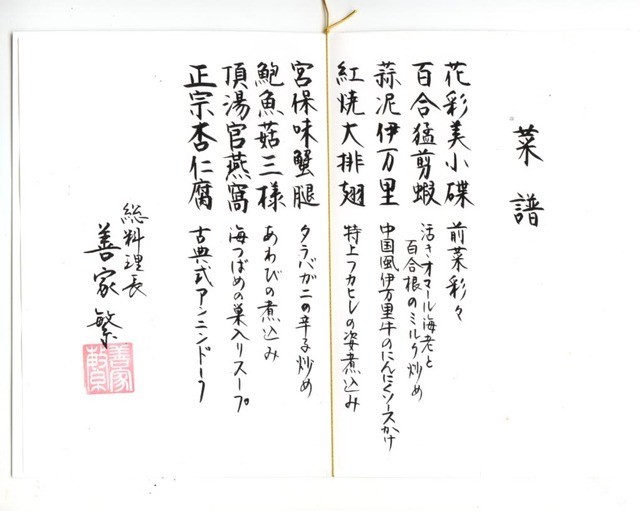 菜譜
花彩美小碟 前菜彩々
百合猛剪蝦 活きオマール海老と
百合根のミルク炒め
蒜泥伊万里 中国風伊万里牛のにんにくソースかけ
紅焼大排翅 特上フカヒレの姿煮込み
宮保味蟹腿 タラバガニの辛子炒め
鮑魚菇三様 あわびの煮込み
頂湯官燕窩 海つばめの巣入りスープ
正宗杏仁腐 古典式アンニンドーフ
総料理長
善家繁